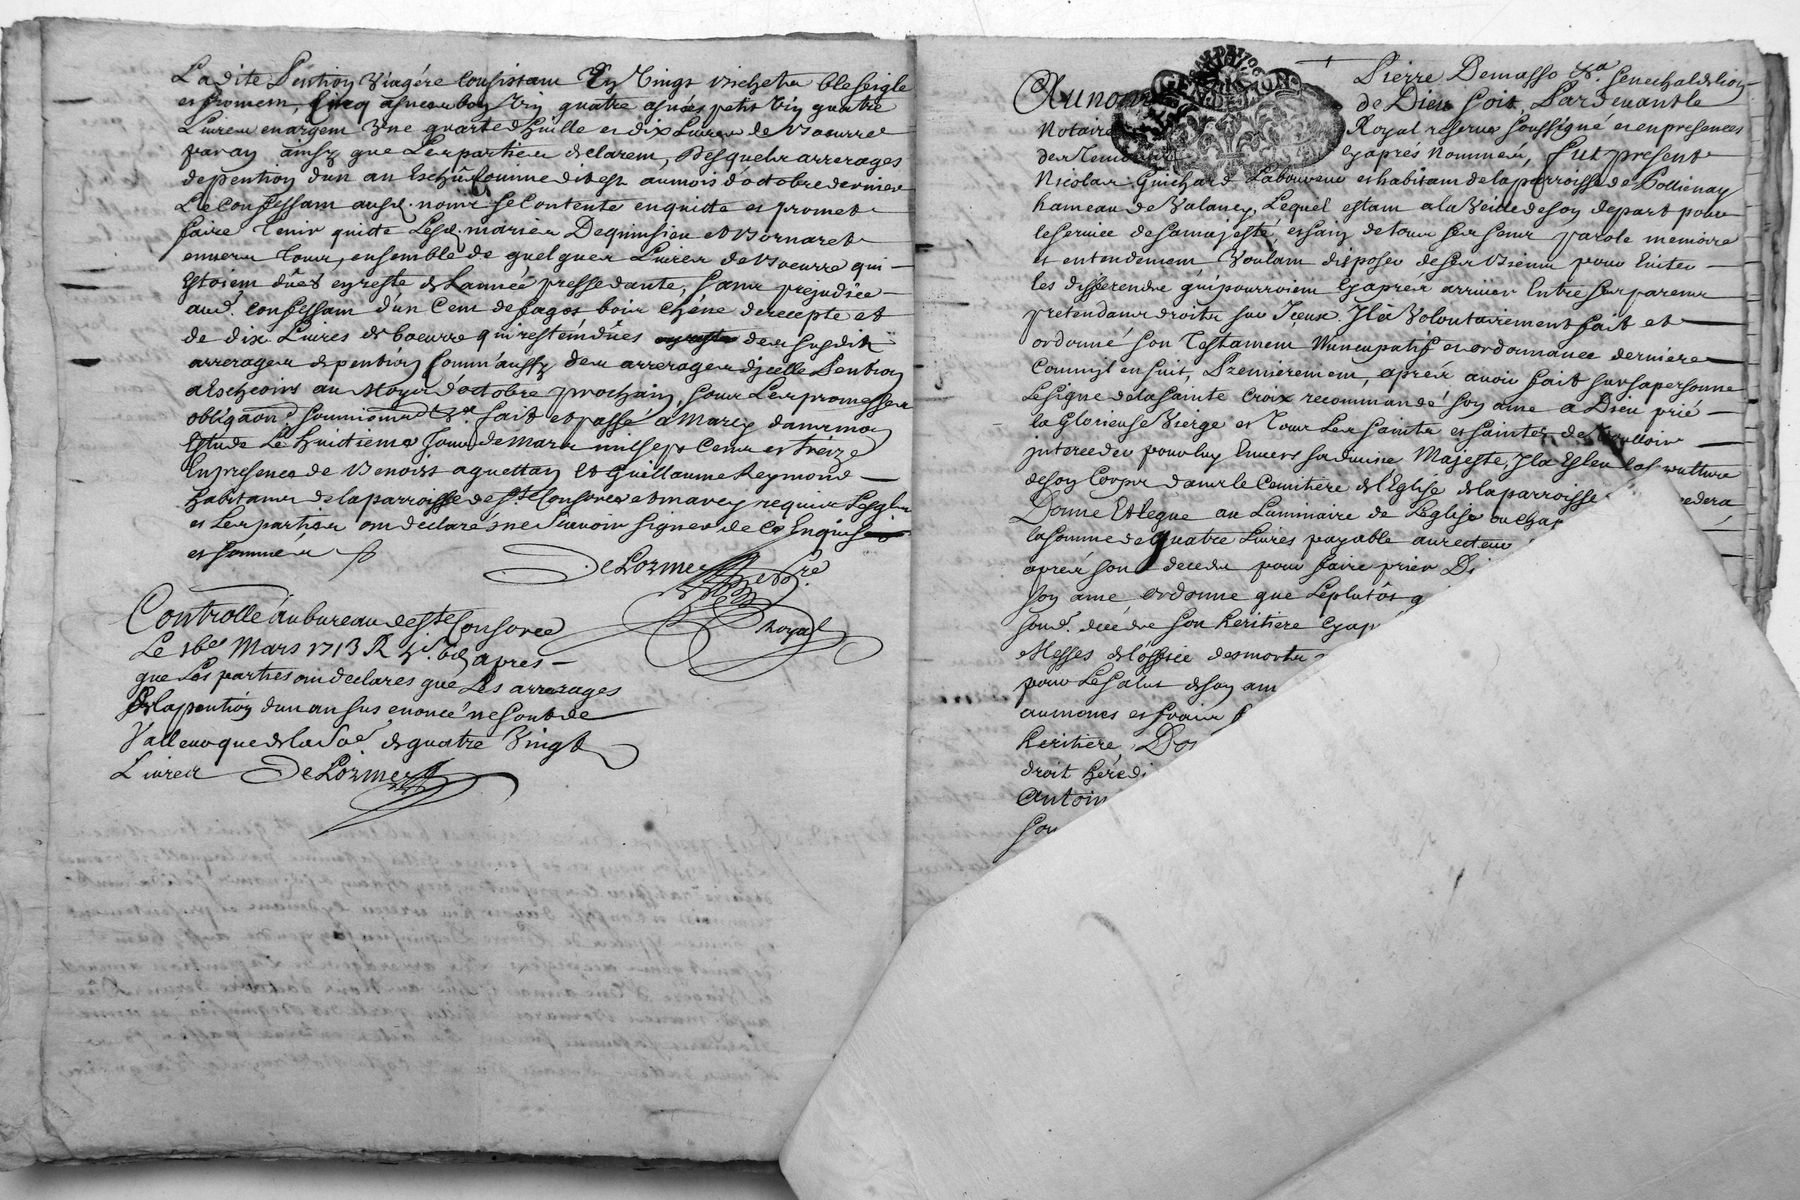 La dite Pention Viagére Consistam En Vingt bichets blé seigle
et froment, Cincq asnées bon Vin quatre asnées petit Vin quatre
Livres en argent Une quarte d'huille et dix Livres de beurre
par an ainsy que Les parties declarent, Desquels arrerages
de pention d'un an Escheu comme dit est au mois d'octobre dernier
Le Confessam ausd. noms se Contente en quitte et promet
faire tenir quitte Lesd. mariés Dequinsieu et Bornaret
envers tous, ensemble de quelques Livres de Beurre qui
Estoient dûes en reste de L'année pressedante, sans prejudice
aud. Confessam d'un Cent de fagos bois chéne de recepte et
de dix Livres de boeurre qui restent dûes des susdits
arrerages de pention comm'aussy des arrerages d'jcelle Pention
a Escheoirs au Moys d'octobre prochain, sous Les promesses
obligaons soumissions &a. fait et passé a Marcy dans mon
Estude Le huictieme Jour de Mars mil sept Cents et treize
En presence de Benoist aguettan Et Guillaume Reymond
habitans de la parroisse de Ste Consorce et marcy requis
et Les parties ont declaré ne sçavoir signer de Ce Enquis
et sommés
DeLorme Nore
Royal
Controllé au bureau de Ste Consorce
Le Mars 1713 R apres
que Les parties ont declarés que Les arrerages
de la pention d'un an sus enoncé ne sont de
Valleu que de la Soe. de quatre Vingt
Livres DeLorme
Pierre Demasso &a. Senechal de Lion
Au nom de Dieu soit, Pardevant le
Notaire Royal reservé soussigné et en presences
des Temoins Cy aprés Nommés, fut present
Nicolas Guichard Laboureur et habitam de la parroisse de Pollienay
hameau de Valancy, Lequel estam a la Veille de son depart pour
le service de sa majesté, et sain de tous ses sens parole memoire
et entendement Voulam disposer de ses biens pour Eviter
les differends qui pourroient Cy aprés arriver Entre ses parens
pretendans droits sur Jceux Jl a Volontairement fait et
ordonné son Testament Nuncupatif et ordonnance derniere
Comm'jl en suit, Premierement, aprés avoir fait sur sa personne
Le signe de la sainte Croix recommandé son ame a Dieu prié
la Glorieuse Vierge et Tous Les saints et saintes de Voulloir
interceder pour luy Envers sa divine Majesté, Jl a Esleu la sepulture
de son Corps dans le Cemitiére de L'Eglise de la parroisse cedera,
Donne Et legue au Luminaire de L'eglise ou chap
la somme de quatre Livres payable au recteur
aprés son decedz pour faire prier Di
son ame ordonne que Le plutôs q
sond. decedz son heritiere Cy ap
Messes de L'office des morts
pour Le salut de son am
aumones et frais f
heritiére, Do
droit heredi
Antoin
sou